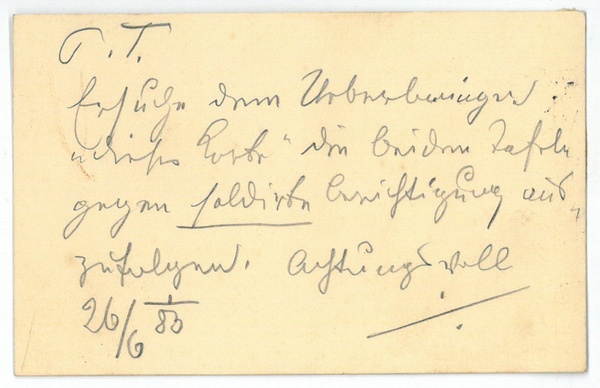 P. T.
Ersuche dem Ueberbringer
„dieser Karte“ die beiden Tafeln
gegen saldirte berichtigung aus
zufolgen. Achtungsvoll
26/6 83